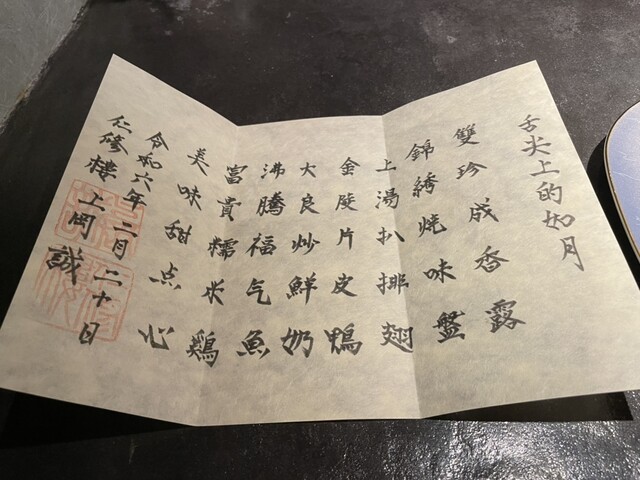 舌尖上的如月
雙珍成香露
錦綉焼味盤
上湯扒排翅
金陵片皮鴨
大良炒鮮奶
沸騰福气魚
富貴糯米鶏
美味甜点心
令和六年二月二十日
仁修樓上岡誠